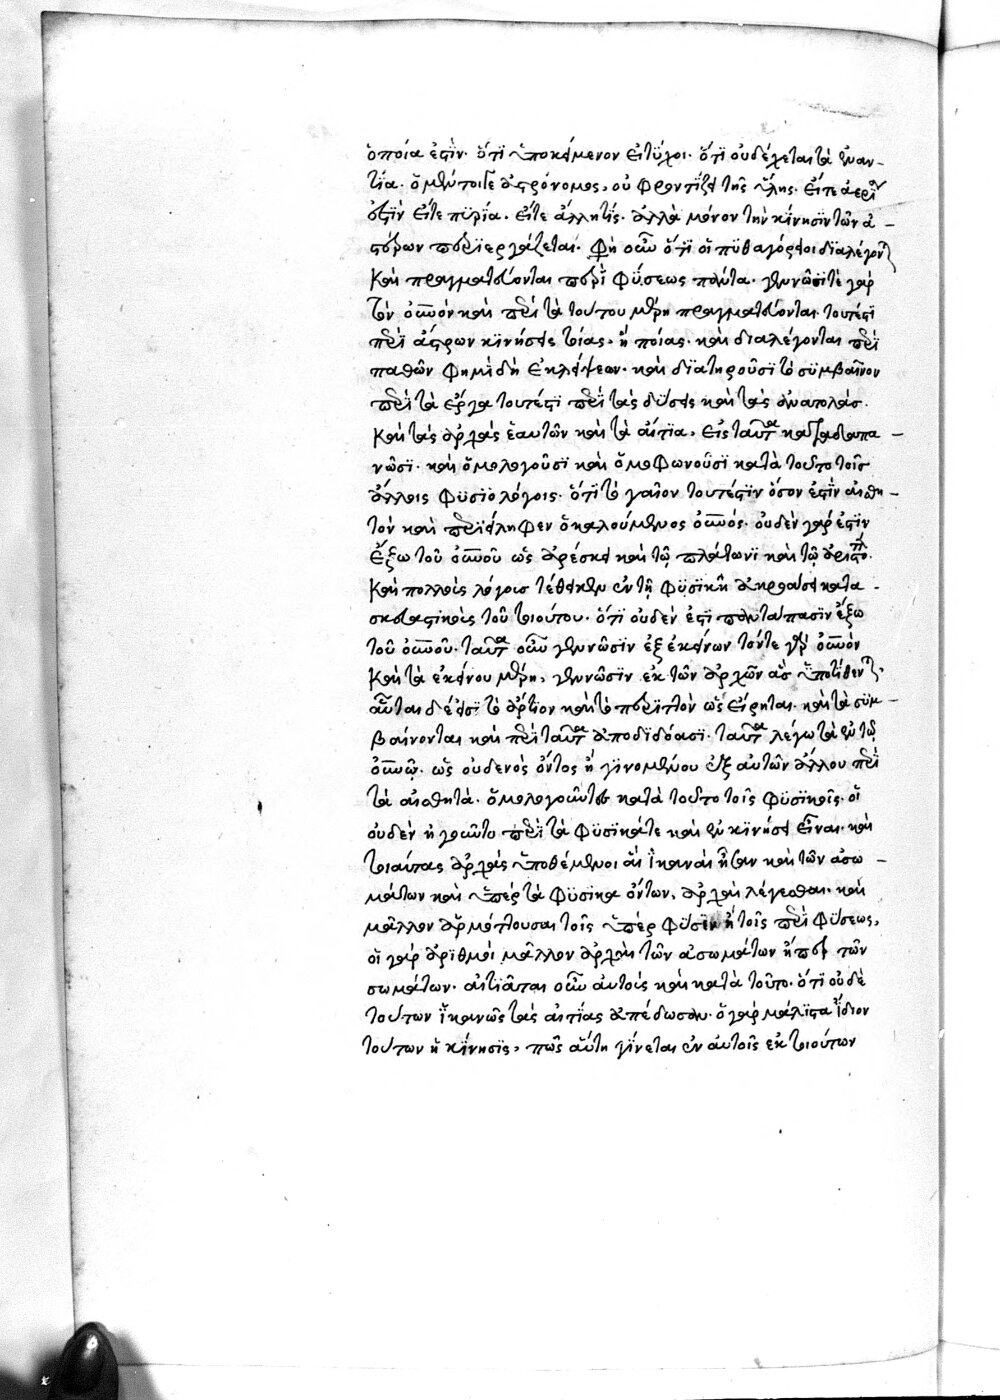 ὁποία ἐστὶν. ὅτι ὑποκείμενον εἰ τύχοι. ὅτι οὐ δέχεται τὰ ἐναν-
τία. ὁ μέντοιγε ἀστρόνομος, οὐ φροντίζει τῆς ὕλης. εἴτε ἀερί
ἐστὶν εἴτε πυρία. εἴτε ἄλλη τίς. ἀλλὰ μόνον τὴν κίνησιν τῶν ἀ-
στέρων περιεργάζεται. φη οὖν ὅτι οἱ πυθαγόρειοι διαλέγονται
καὶ πραγματεύονται περὶ φύσεως πάντα. γεννῶσί τε γὰρ
τὸν οὐνὸν καὶ περὶ τὰ τούτου μέρη πραγματεύονται. τουτέστι
περὶ ἄστρων κινήσεις τίας, ἢ ποίας. καὶ διαλέγονται περὶ
παθῶν φημὶ δὴ ἐκλείψεων. καὶ διατηροῦσι τὸ συμβαῖνον
περὶ τὰ ἔργα τουτέστι περὶ τὰς δύσεις καὶ τὰς ἀνατολάς.
καὶ τὰς ἀρχὰς ἑαυτῶν καὶ τὰ αἴτια, εἰς ταῦτα καταδαπα-
νῶσι. καὶ ὁμολογοῦσι καὶ ὁμοφωνοῦσι κατὰ τοῦτο τοῖς
ἄλλοις φυσιολόγοις. ὅτι τὸ γε ὂν τουτέστιν ὅσον ἐστὶν αἰσθη-
τὸν καὶ περιείληφεν ὁ καλούμενος οὐνός. οὐδὲν γάρ ἐστιν
ἔξω τοῦ οὐνοῦ ὡς ἀρέσκει καὶ τῷ πλάτωνι καὶ τῷ ἀριστοτέλει.
καὶ πολλοῖς λόγοις τέθεικεν ἐν τῇ φυσικῇ ἀκροάσει κατα-
σκευαστικοῖς τοῦ τοιούτου. ὅτι οὐδὲν ἔστι παντάπασιν ἔξω
τοῦ οὐνοῦ. ταῦτα οὖν γεννῶσιν ἐξ ἐκείνων τόν τε γὰρ οὐνὸν
καὶ τὰ ἐκείνου μέρη, γεννῶσιν ἐκ τῶν ἀρχῶν ἃς ὑποτίθενται.
αὗται δέ εἰσι τὸ ἄρτιον καὶ τὸ περιττὸν ὡς εἴρηται. καὶ τὰ συμ-
βαίνοντα καὶ περὶ ταῦτα ἀποδιδόασι. ταῦτα λέγω τὰ ἐν τῷ
οὐνῷ. ὡς οὐδενὸς ὄντος ἢ γινομένου ἐξ αὐτῶν ἄλλου περὶ
τὰ αἰσθητὰ. ὁμολογοῦντες κατὰ τοῦτο τοῖς φυσικοῖς. οἳ
οὐδὲν ἡγοῦντο περὶ τὰ φυσικά τε καὶ ἐν κινήσει εἶναι. καὶ
τοιαύτας ἀρχὰς ὑποθέμενοι αἳ ἱκαναὶ ἦσαν καὶ τῶν ἀσω-
μάτων καὶ ὑπὲρ τὰ φυσικὰ ὄντων, ἀρχαὶ λέγεσθαι. καὶ
μᾶλλον ἁρμόττουσαι τοῖς ὑπὲρ φύσιν ἢ τοῖς περὶ φύσεως,
οἱ γὰρ ἀριθμοί μᾶλλον ἀρχαὶ τῶν ἀσωμάτων ἤπερ τῶν
σωμάτων. αἰτιᾶται οὖν αὐτοὺς καὶ κατὰ τοῦτο. ὅτι οὐδὲ
τούτων ἱκανῶς τὰς αἰτίας ἀπέδωσαν. ὃ γὰρ μάλιστα ἴδιον
τούτων ἡ κίνησις, πῶς αὕτη γίνεται ἐν αὐτοῖς ἐκ τοιούτων